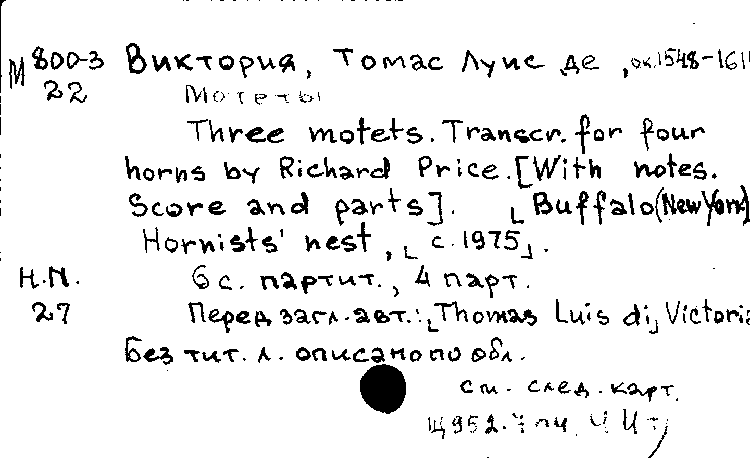 М 800-3 Виктория, Томас Луис де, ок. 1548-161
22 Мотеты
Three motets. Transcr. for four
horns by Richard Price. [With notes.
Score and parts]. [Buffalo (New York)
Hornists' nest, [c. 1975].
Н.П. 6 с. партит., 4 парт.
27 Перед загл. авт.: [Thomas Luis di] Victoria
Без тит. л. описано по обл.
см. след. карт.
Щ952.